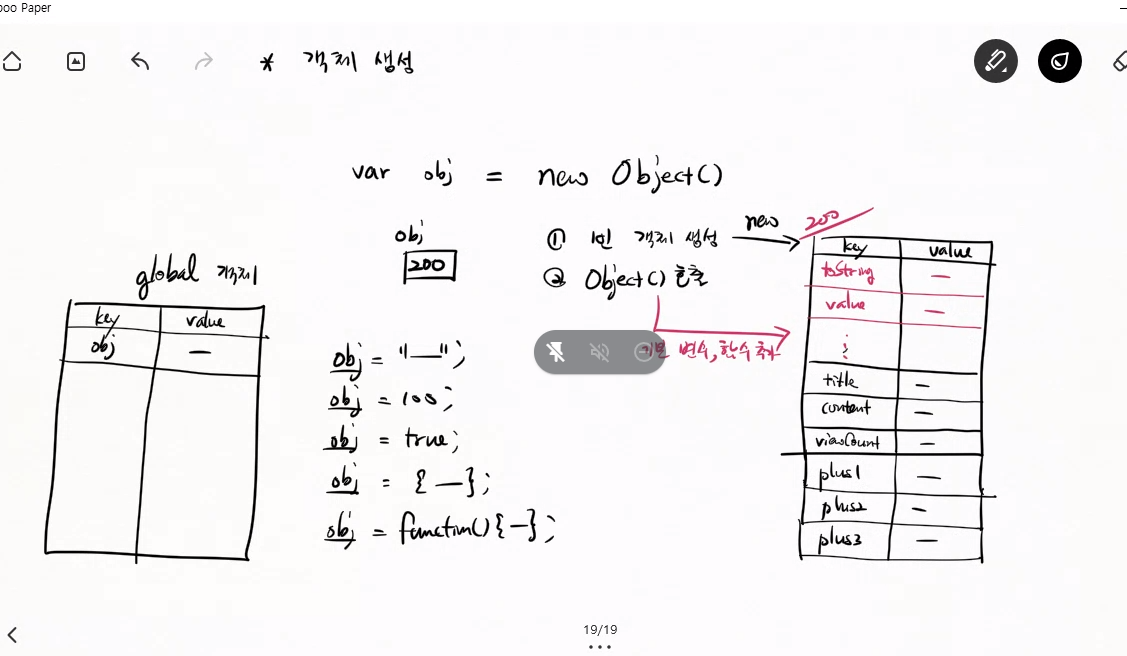 Paper
* 객체 생성
var obj = new Object()
obj
200
① 빈 객체 생성
new
200
② Object() 호출
변수, 함수 추가
global 객체
key value
obj —
obj = "—";
obj = 100;
obj = true;
obj = { — };
obj = function() { — };
key value
toString —
value —
⋮
title —
content —
viewCount —
plus1 —
plus2 —
plus3 —
19/19